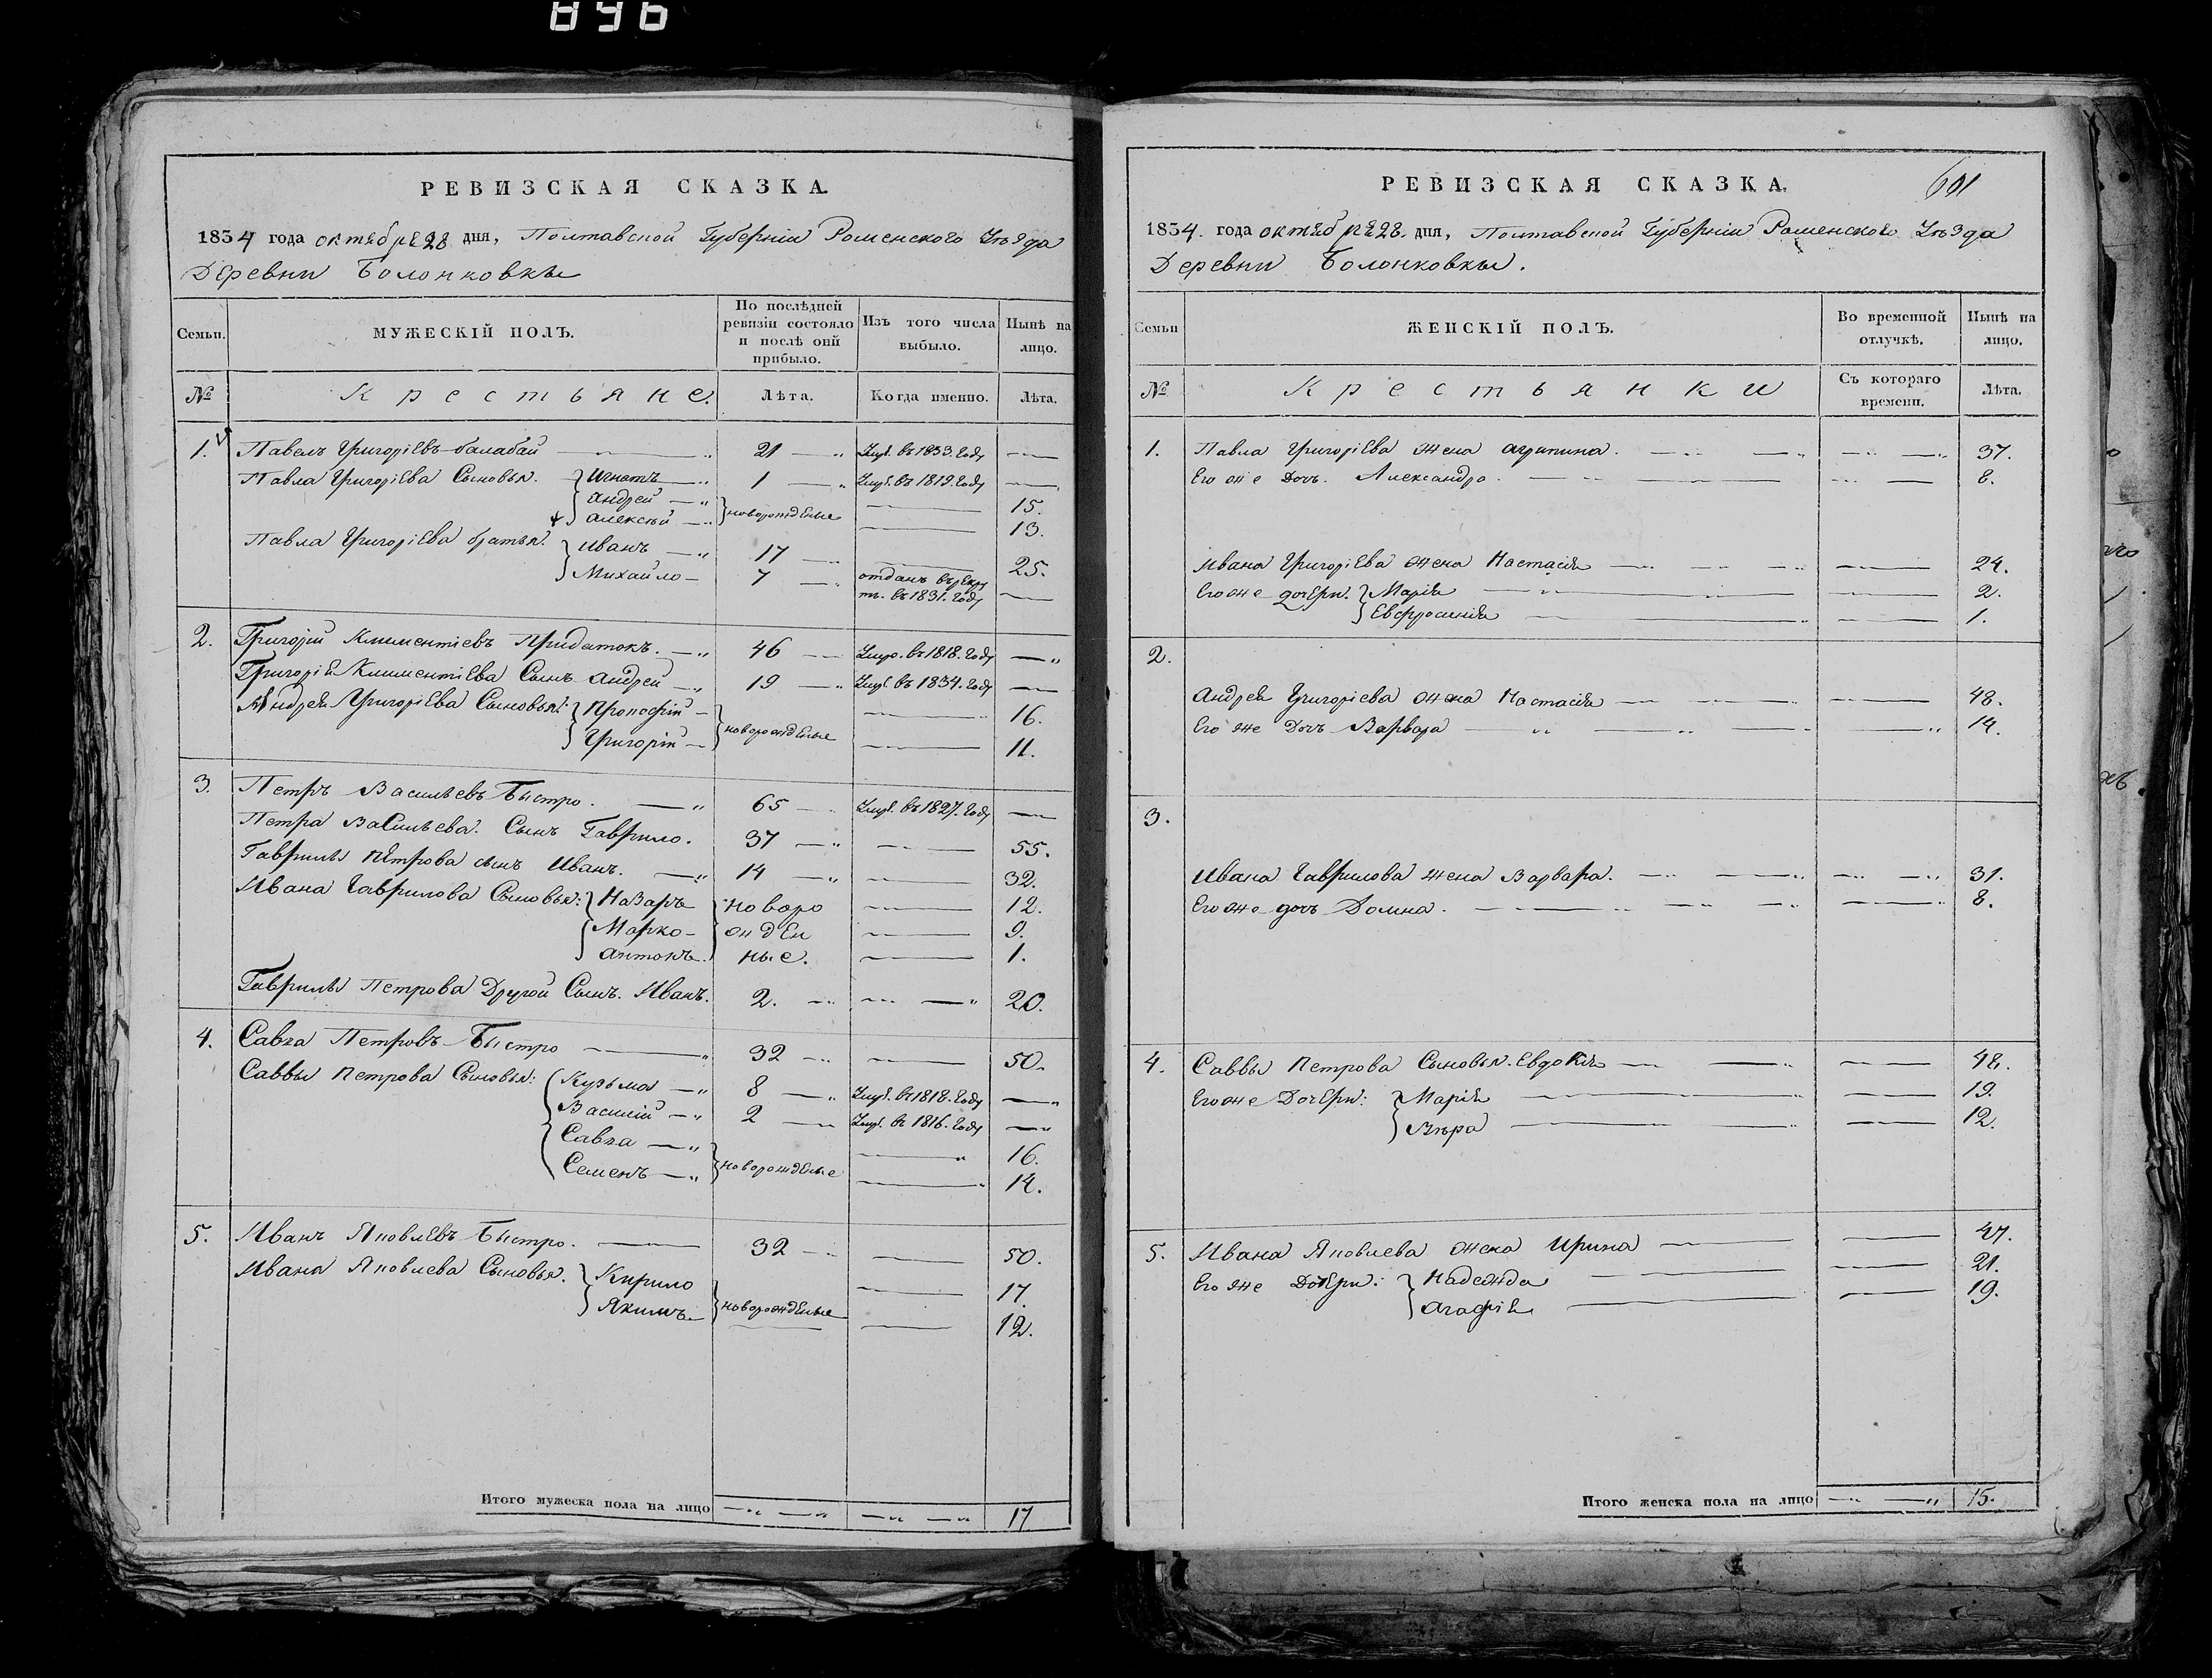 896
РЕВИЗСКАЯ СКАЗКА.
1834 года октября 28 дня, Полтавской Губерніи Роменского Уѣзда
Деревни Болонковки
Семьи.
МУЖЕСКІЙ ПОЛЪ.
По послѣдней ревизіи состояло и послѣ оной прибыло.
Изъ того числа выбыло.
Нынѣ на лицо.
№
Крестьяне.
Лѣта.
Когда именно.
Лѣта.
1. Павелъ Григоріевъ Балабай 21 Умре. въ 1833. году
Павла Григоріева Сыновья. Игнатъ 1 Умре. въ 1819. году
Андрей новорожденые 15.
Алексѣй 13.
Павла Григоріева братья. Иванъ 17 25.
Михайло 7 отданъ въ рекру
ты. въ 1831. году
2. Григорій Климентіевъ Придатокъ. 46 Умре. въ 1818. году
Григорія Климентіева Сынъ Андрей 19 Умре. въ 1834. году
Андрея Григоріева Сыновья: Прокофій новорожденые 16.
Григорій 11.
3. Петръ Васильевъ Быстро. 65 Умре. въ 1827. году
Петра Васильева. Сынъ Гаврило. 37 55.
Гаврилы Петрова сынъ Иванъ. 14 32.
Ивана Гаврилова Сыновья: Назаръ новоро 12.
Марко жден 9.
Антонъ ные. 1.
Гаврилы Петрова Другой Сынъ. Иванъ. 2. 20.
4. Савва Петровъ Быстро 32 50.
Саввы Петрова Сыновья: Кузьма 8 Умре. въ 1818. году
Василій 2 Умре. въ 1816. году
Савва новорожденые 16.
Семенъ 14.
5. Иванъ Яковлевъ Быстро. 32 50.
Ивана Яковлева Сыновья. Кирило новорожденые 17.
Якимъ 12.
Итого мужеска пола на лицо 17
601
РЕВИЗСКАЯ СКАЗКА.
1834. года октября 28. дня, Полтавской Губерніи Роменского Уѣзда
Деревни Болонковки.
Семьи
ЖЕНСКІЙ ПОЛЪ.
Во временной отлучкѣ.
Нынѣ на лицо.
№
Крестьянки
Съ котораго времени.
Лѣта.
1. Павла Григоріева жена Агрипина. 37.
Его же Дочь. Александра. 8.
Ивана Григоріева жена Настасія 24.
Его же дочери. Марія 2.
Евфросинія 1.
2.
Андрея Григоріева жена Настасія 48.
Его же Дочь Варвара 14.
3.
Ивана Гаврилова жена Варвара. 31.
Его же дочь Домна. 8.
4. Саввы Петрова Сыновья. Евдокія 48.
Его же Дочери: Марія 19.
Вѣра 12.
5. Ивана Яковлева жена Ирина 47.
Его же Дочери: Надежда 21.
Агафія 19.
Итого женска пола на лицо 15.